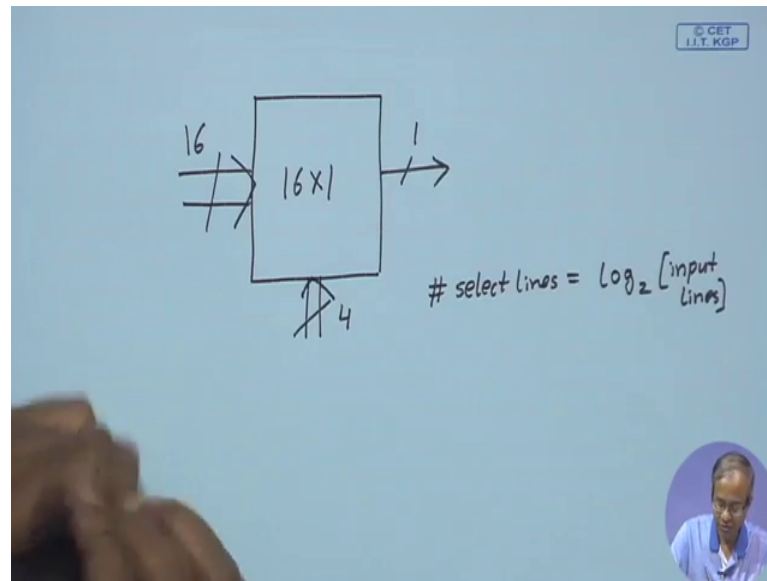 © CET
I.I.T. KGP
16
1
16X1
# select lines = log₂ [input
lines]
4